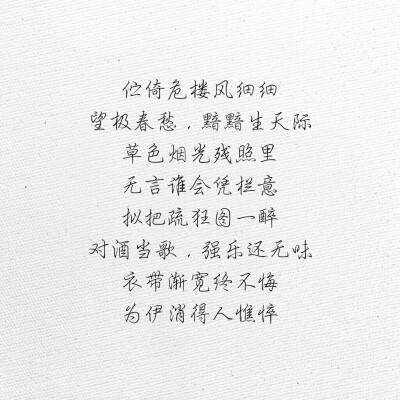 伫倚危楼风细细
望极春愁，黯黯生天际
草色烟光残照里
无言谁会凭栏意
拟把疏狂图一醉
对酒当歌，强乐还无味
衣带渐宽终不悔
为伊消得人憔悴